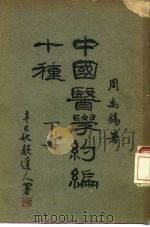 周禹錫著
中國醫學約編
十種
下
辛巳秋顏道人署